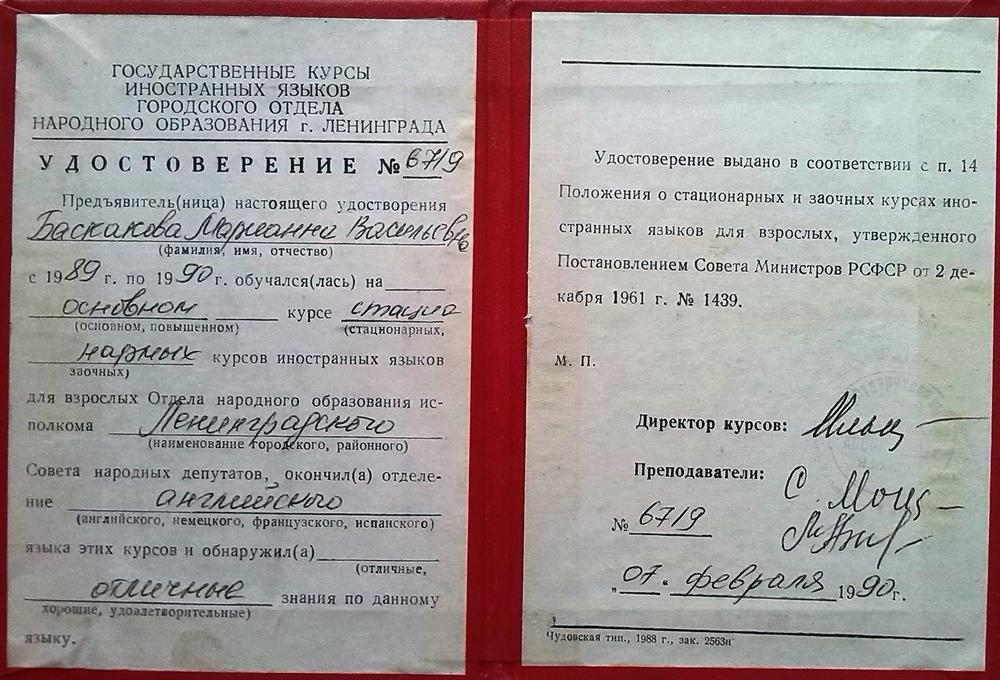 ГОСУДАРСТВЕННЫЕ КУРСЫ
ИНОСТРАННЫХ ЯЗЫКОВ
ГОРОДСКОГО ОТДЕЛА
НАРОДНОГО ОБРАЗОВАНИЯ г. ЛЕНИНГРАДА
УДОСТОВЕРЕНИЕ № 6719
Предъявитель(ница) настоящего удостоверения
Баскакова Марианна Васильевна
(фамилия, имя, отчество)
с 1989 г. по 1990 г. обучался(лась) на
основном курсе стацио
(основном, повышенном) (стационарных,
нарных курсов иностранных языков
заочных)
для взрослых Отдела народного образования ис-
полкома Ленинградского
(наименование городского, районного)
Совета народных депутатов, окончил(а) отделе-
ние английского
(английского, немецкого, французского, испанского)
языка этих курсов и обнаружил(а)
(отличные,
отличные знания по данному
хорошие, удовлетворительные)
языку.
Удостоверение выдано в соответствии с п. 14
Положения о стационарных и заочных курсах ино-
странных языков для взрослых, утвержденного
Постановлением Совета Министров РСФСР от 2 де-
кабря 1961 г. № 1439.
М. П.
Директор курсов:
Преподаватели:
№ 6719
„07" февраля 1990 г.
Чудовская тип., 1988 г., зак. 2563н